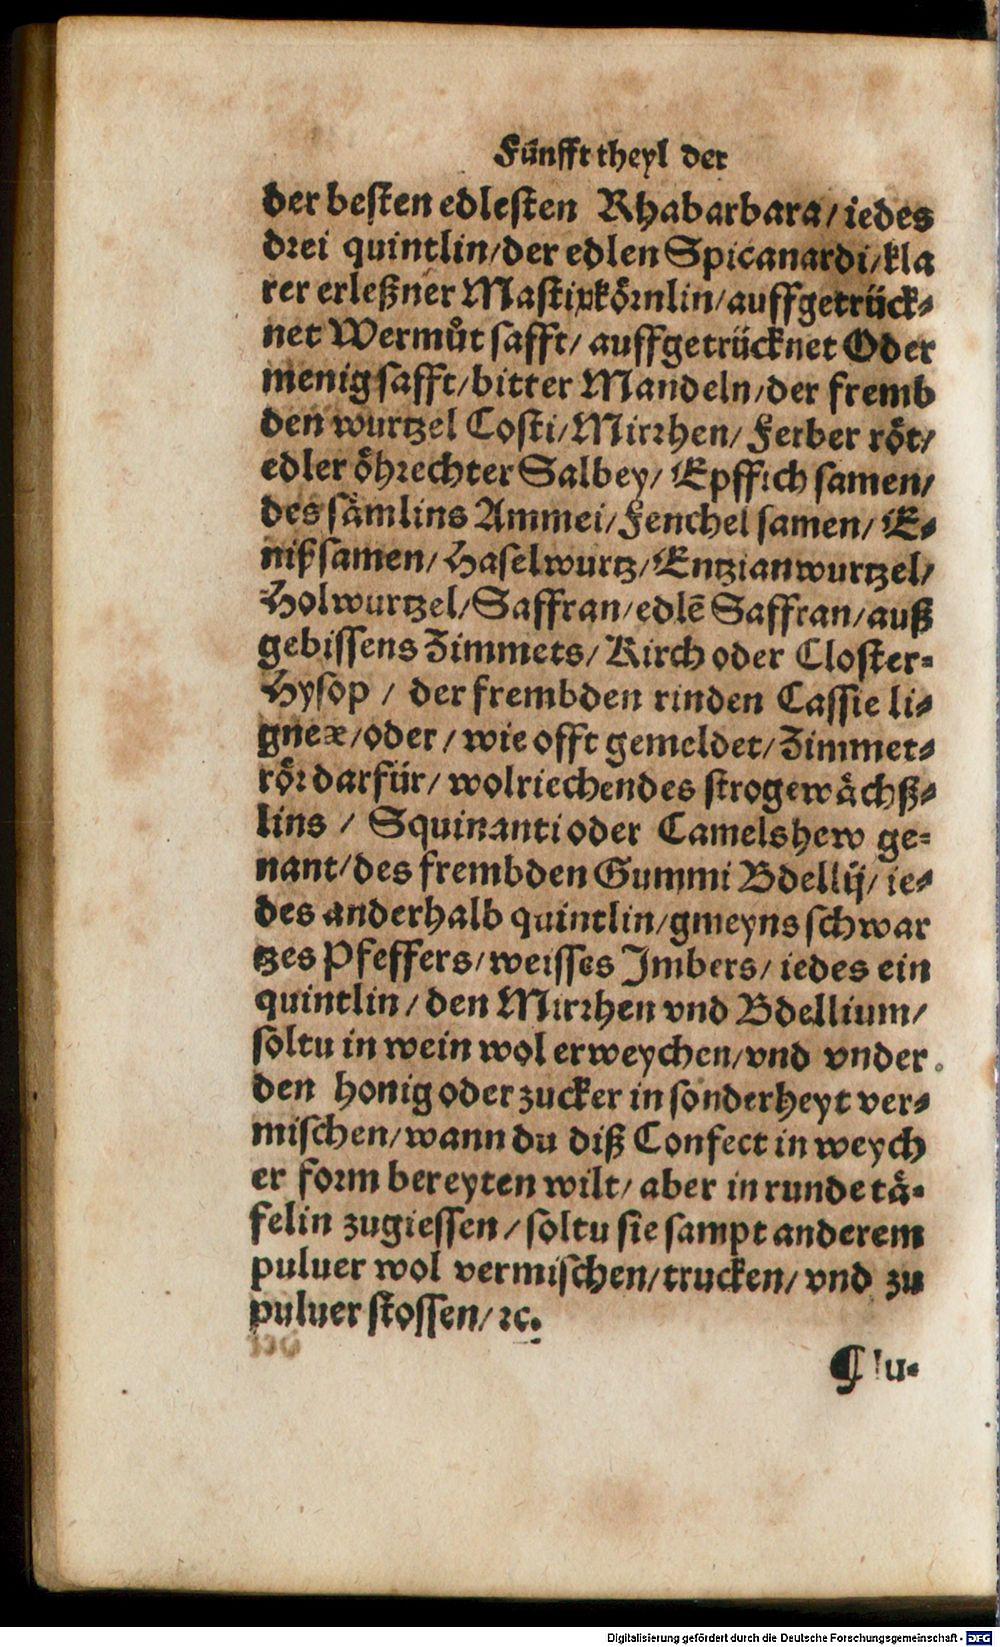 Fünfft theyl der
der besten edlesten Rhabarbara/ iedes
drei quintlin/der edlen Spicanardi/kla
rer erleßner Mastixkörnlin/auffgetrück⸗
net Wermůt safft/ auffgetrücknet Oder
menigsafft/bitter Mandeln/der fremb
den wurtzel Costi/Mirrhen/ Ferber röt/
edler öhrechter Salbey/ Epffich samen/
des sämlins Ammei/Fenchel samen/ E⸗
nißsamen/Haselwurtz/Entzianwurtzel/
Holwurtzel/Saffran/edlē Saffran/auß
gebissens Zimmets/ Kirch oder Closter⸗
Hysop / der frembden rinden Cassie li⸗
gneæ/oder/ wie offt gemeldet/Zimmet⸗
rör darfür/ wolriechendes strogewächß⸗
lins / Squinanti oder Camelshew ge⸗
nant/des frembden Gummi Bdellij/ ie⸗
des anderhalb quintlin/gmeyns schwar
tzes Pfeffers/weisses Imbers/ iedes ein
quintlin/ den Mirrhen vnd Bdellium/
soltu in wein wol erweychen/vnd vnder
den honig oder zucker in sonderheyt ver⸗
mischen/wann du diß Confect in weych
er form bereyten wilt/ aber in runde tä⸗
felin zugiessen/ soltu sie sampt anderem
puluer wol vermischen/trucken/ vnd zu
puluer stossen/ ꝛc.
Digitalisierung gefördert durch die Deutsche Forschungsgemeinschaft - DFG